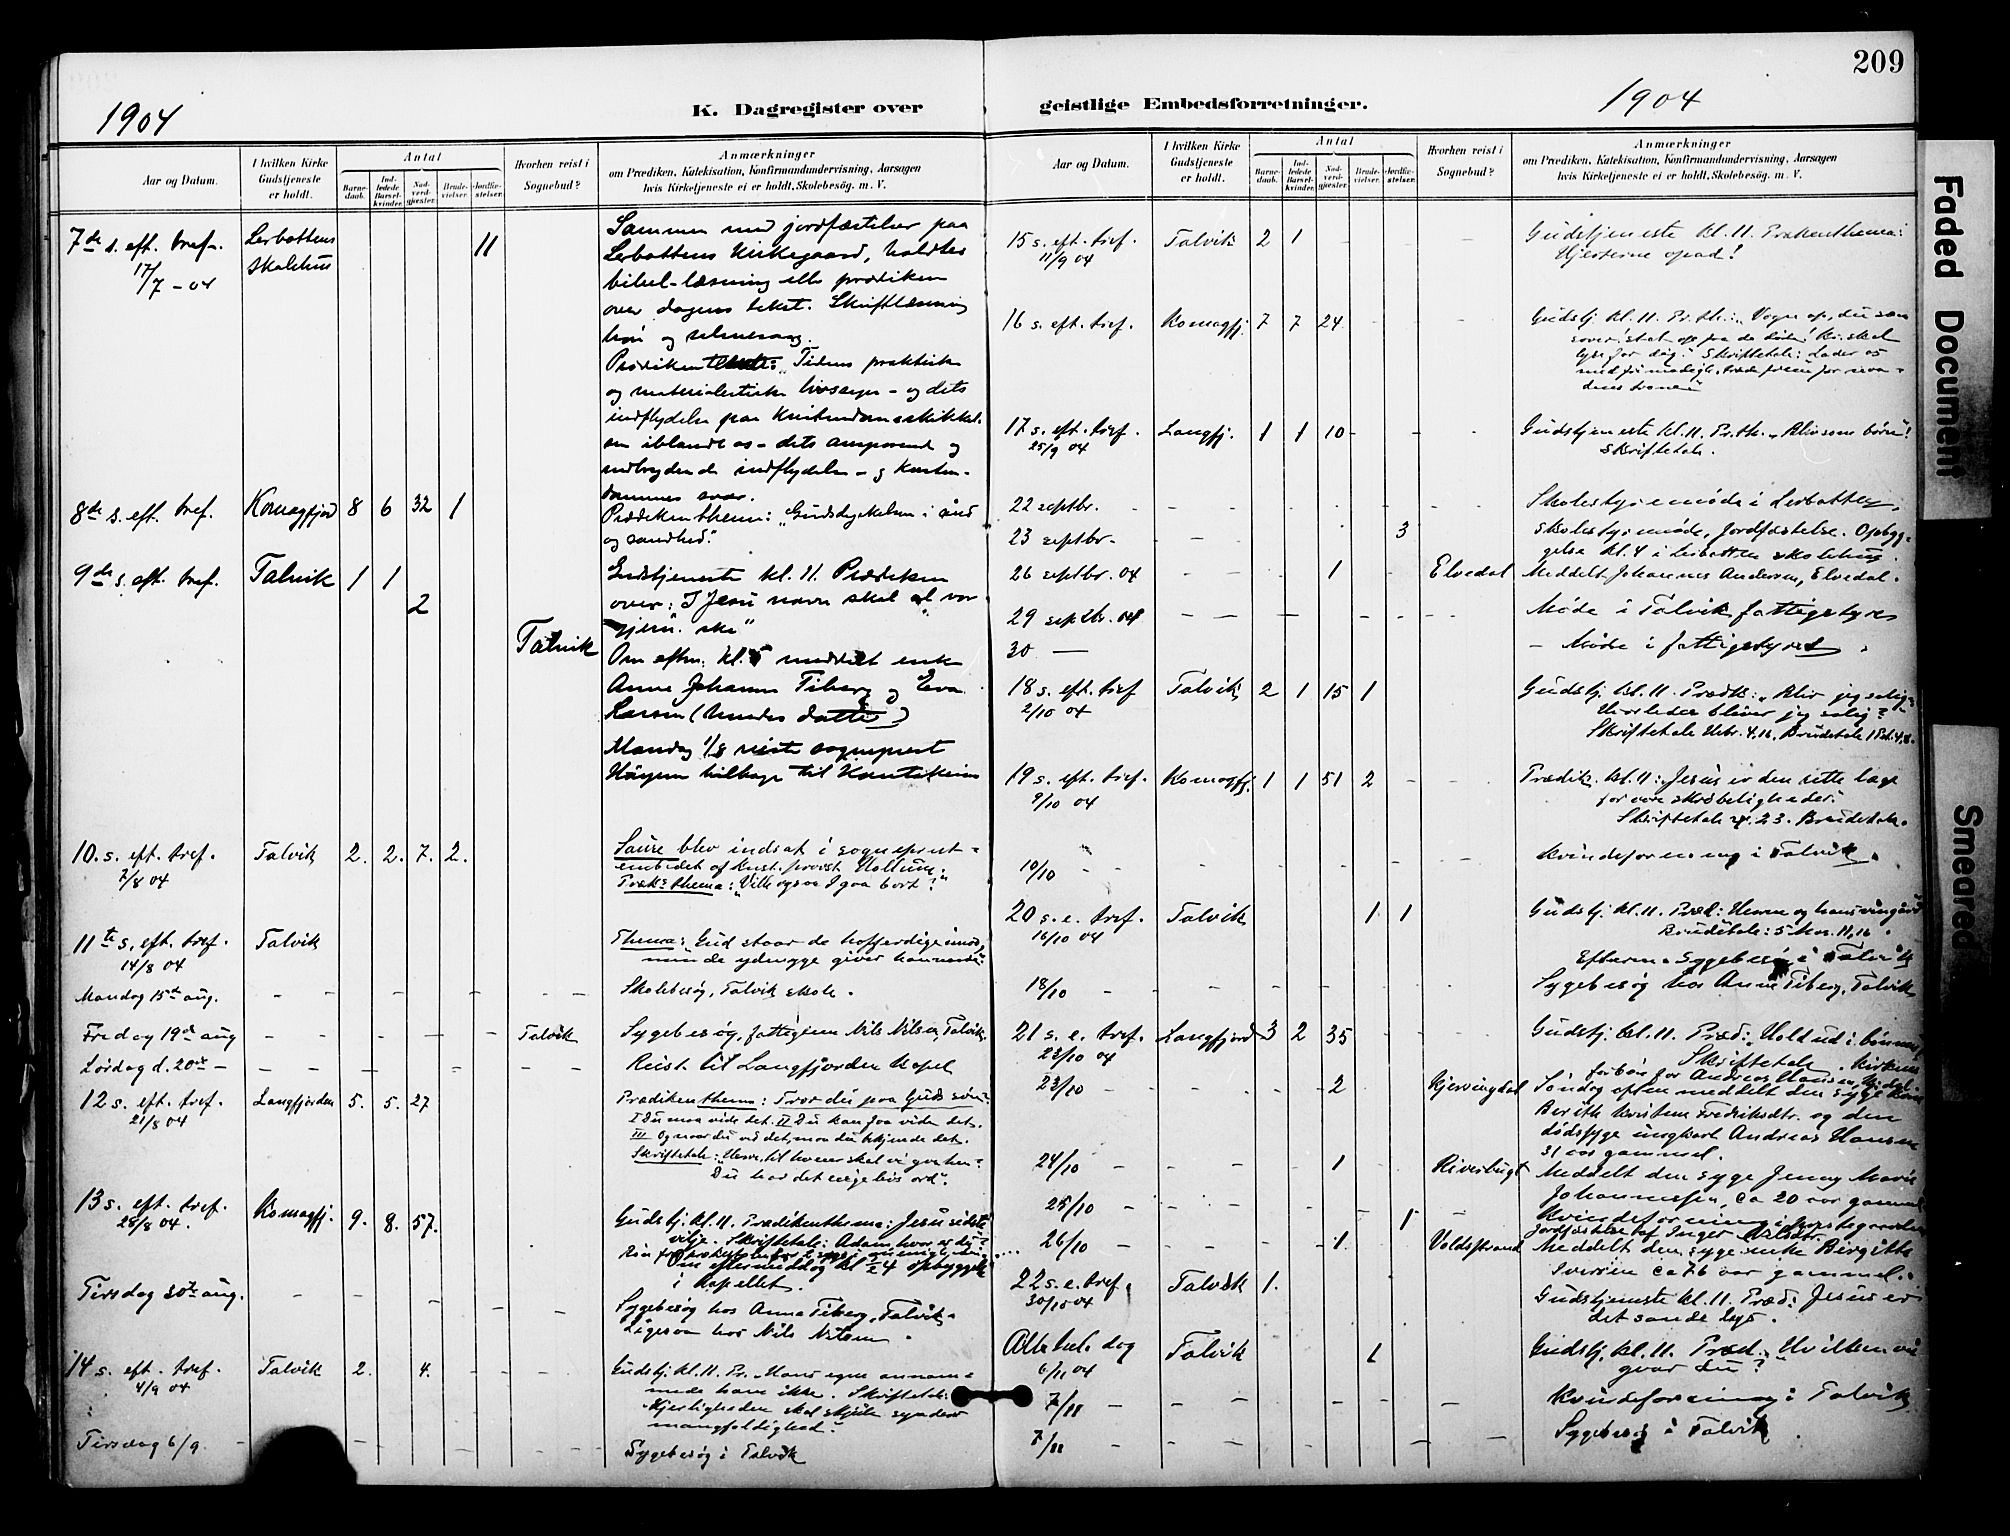 209
1904
K. Dagregister over
geistlige Embedsforretninger.
1904
Aar og Datum.
I hvilken Kirke Gudstjeneste er holdt.
Antal
Barne-daab.
Ind-ledede Barsel-kvinder.
Nad-verd-gjester.
Brude-vielser.
Jordfæ-stelser.
Hvorhen reist i Sognebud?
Anmærkninger
om Prædiken, Katekisation, Konfirmandundervisning, Aarsagen
hvis Kirketjeneste ei er holdt, Skolebesøg. m. V.
7de s. eft. tref. Lerbottens 11 Sammen med jordfæstelser paa
17/7 - 04 skolehus Lerbottens Kirkegaard, holdtes
bibel-læsning eller prædiken
over dagens tekst. Skriftlæsning
bøn og salmesang.
Prædiken : "Tidens praktiske
og materialistiske livssyn - og dets
indflydelse paa
iblandt os - dets og
indflydelse - og
dommes svar.
8de s. eft. tref. Komagfjord 8 6 32 1 Prædikenthema: "Gudsdyrkelsen i ånd
og sandhed."
9de s. eft. tref. Talvik 1 1 Gudstjeneste kl. 11. Prædiken
2 over: I Jesu navn skal al vor
gjern. ske"
Talvik Om eftm. kl. 5 meddelt enke
Anne Johanne Tiberg og Eva
Larsen (hendes datter)
Mandag 1/8 reiste sogneprest
tilbage til Kautokeino
10. s. eft. tref. Talvik 2. 2. 7. 2. Saure blev indsat i sogneprest-
7/8 04 embedet af konst. provst
Præk. thema: "Vil ogsaa I gaa bort?"
11te s. eft. tref. Talvik Thema: "Gud staar de hoffærdige imod,
14/8 04 men de ydmyge giver han naade."
Mandag 15de aug. - - - - - - - Skolebesøg, Talvik skole.
Fredag 19de aug - - - - - Talvik Sygebesøg, fattiglem Nils Nilsen, Talvik.
Lørdag d. 20de - - - - - - - - Reist til Langfjorden Kapel
12 s. eft. tref. Langfjorden 5. 5. 27 Prædikenthema: Tror du paa Guds søn?
21/8 04 I Du maa vide det. II Du kan faa vide det.
III Og naar du ved det, maa du bekjende det.
Skriftetale: "Herre, til hvem skal vi gaa hen?
Du har det evige livs ord".
13 s. eft. tref. Komagfj. 9. 8. 57. Gudstj. kl. 11. Prædikenthema: Jesu sidste
28/8 04. vilje. Skriftetale: Adam, hvor er du?
Om eftermiddag kl 4 opbyggelse
i Kapellet.
Tirsdag 30te aug. - - - - - - - Sygebesøg hos Anna Tiberg, Talvik.
Ligesaa hos Nils Nilsen.
14 s. eft. tref. Talvik 2. 4. - - Gudstj. kl. 11. Pr. "Hans egne annam-
4/9 04 mede ham ikke. Skriftetale:
Kjerligheden skal skjule synders
mangfoldighed."
Tirsdag 6/9. - - - - - Sygebesøg i Talvik
Aar og Datum.
I hvilken Kirke Gudstjeneste er holdt.
Antal
Barne-daab.
Ind-ledede Barsel-kvinder.
Nad-verd-gjester.
Brude-vielser.
Jordfæ-stelser.
Hvorhen reist i Sognebud?
Anmærkninger
om Prædiken, Katekisation, Konfirmandundervisning, Aarsagen
hvis Kirketjeneste ei er holdt, Skolebesøg. m. V.
15 s. eft. tref. Talvik 2 1 - - - - Gudstjeneste kl. 11. Prækenthema:
11/9 04 Hjerterne opad!
16 s. eft. tref. Komagfj. 7 7 24 - - - Gudstj. kl. 11. Pr. th.: "Vogn op, du som
sover, stat op fra de døde! Kristus skal
lyse for dig." Skriftetale: Lader os
med frimodigh. træde frem for naa-
dens trone"
17 s. eft. tref. Langfj. 1 1 10 - - - Gudstjeneste kl. 11. Pr. th. "Bliv som børn!"
25/9 04 Skriftetale.
22 septbr. - - - - - - - Skolestyremøde i Lerbotten.
23 septbr. - - - - 3 Skolestyremøde, Jordfæstelse. Opbyg-
gelse kl. 4 i Lerbotten skolehus.
26 septbr. 04 - - 1 - Elvedal Meddelt Johannes Andersen, Elvedal.
29 septbr. 04 - - - - - - - Møde i Talvik fattigstyre
30 — - Møde i fattigstyret
18 s. eft. tref Talvik 2 1 15 1 Gudstj. kl. 11. Prædk: "Bliv jeg salig?
2/10 04 Hvorledes bliver jeg salig?
Skriftetale Hebr. 4,16, Brudetale 1 Pet. 4,8.
19 s. eft. tref. Komagfj. 1 1 51 2 - - Prædik. kl. 11: Jesus er den rette læge
9/10 04 for vore skrøbeligheder.
Skriftetale 23. Brudetale.
10/10 - - - - - - - Kvindeforening i Talvik.
20 s. e. tref. Talvik 1 1 Gudstj. kl. 11. Præd: Herren og hans vingård
16/10 04 Brudetale: 5 Mos. 11,16.
Efterm. Sygebesøg i Talvik
18/10 - - - - - - - Sygebesøg hos Anna Tiberg, Talvik
21 s. e. tref. Langfjord 3 2 35 Gudstj. kl. 11. Præd: Hold ud i bønnen,
23/10 04 Skriftetale. Kirkens
forbøn for Andreas Hansen,
23/10 - - - - 2 Kjerringdal Søndag eften meddelt den syge kone
Berith Kristine Fredriksdtr. og den
dødssyge ungkarl Andreas Hansen
31 aar gammel.
24/10 - - - - 1 Riversbugt Meddelt den syge Jenny Marie
Johannessen, ca 20 aar gammel
25/10 - - - - - - Kvindeforening i
26/10 - - - - 1 1 Voldstrand Jordfæstelse af Inger
Meddelt den syge enke Birgitte
Iversen ca 76 aar gammel.
22 s. e. tref. Talvik 1. Gudstjeneste kl. 11. Præd: Jesus er
30/10 04 det sande lys.
Alle hel. dag Talvik 1 Gudstj. kl. 11. Præd. "Hvilken vei
6/11 04 gaar du?"
7/11 - - - - - - - Kvindeforening i Talvik
7/11 - - - - - - - Sygebesøg i Talvik
Faded Document
Smeared